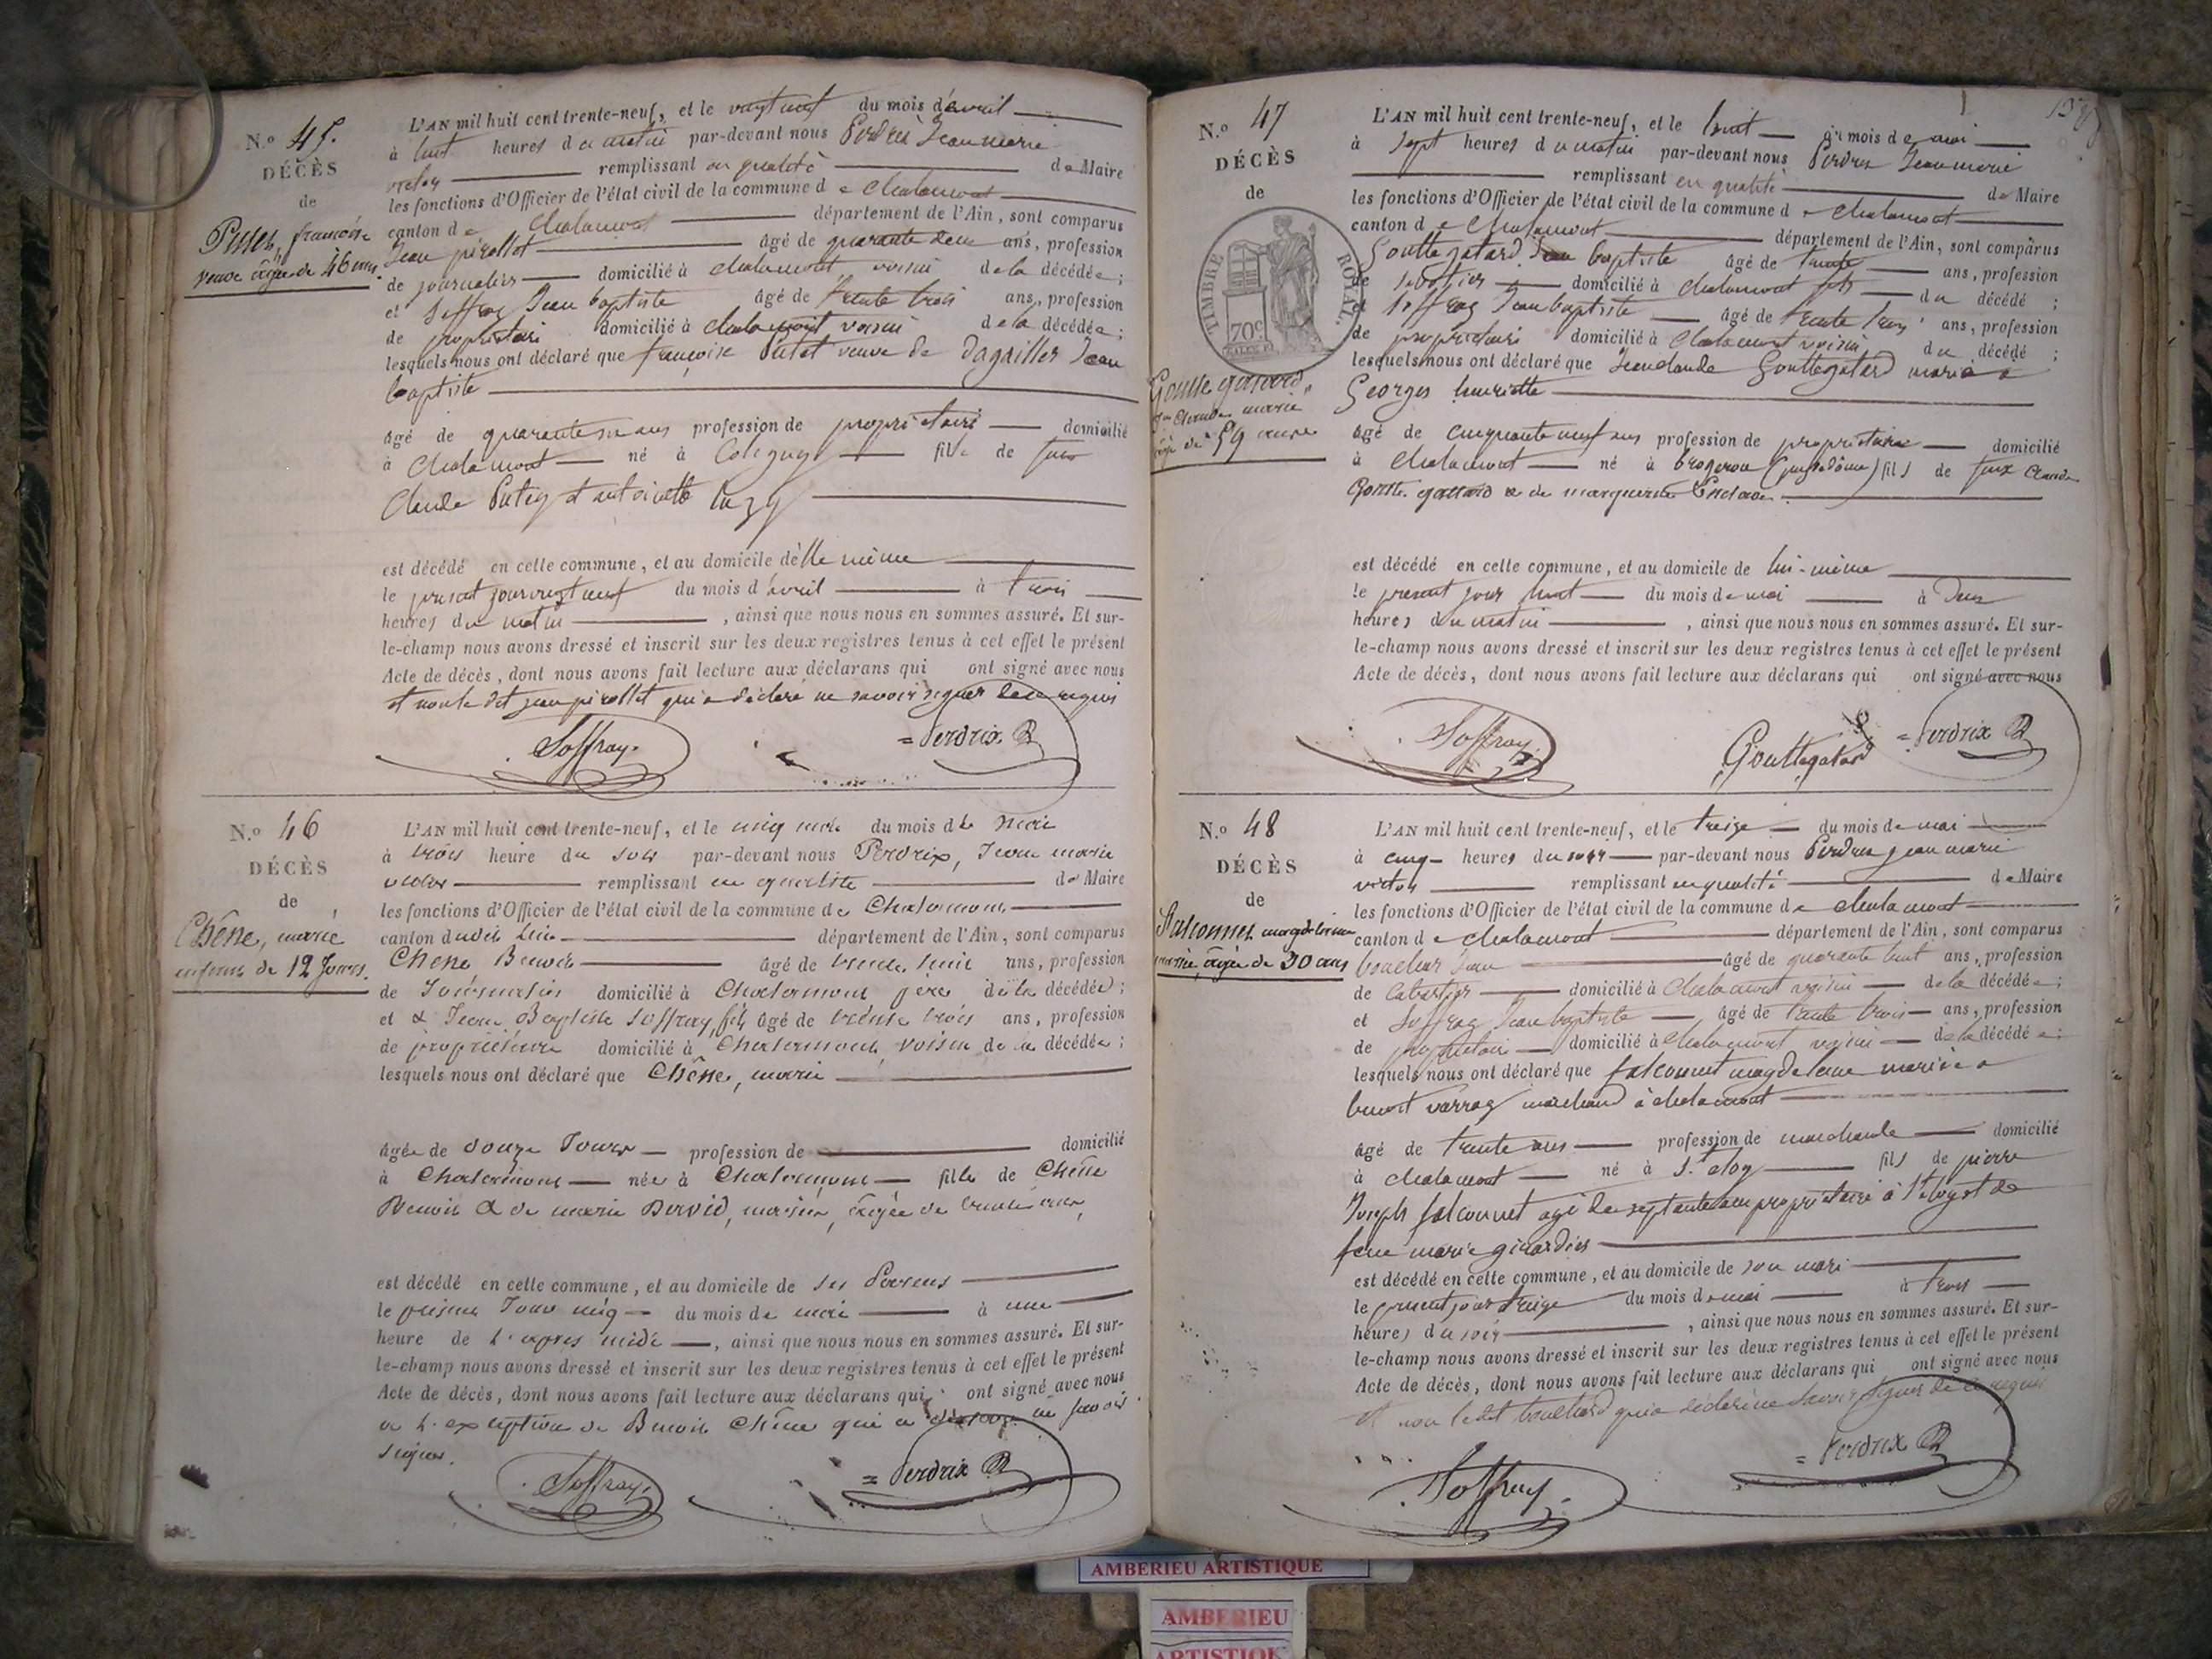 N.o 45.
DÉCÈS
de
françoise
veuve âgée de 46 ans.
L'AN mil huit cent trente-neuf, et le vingt neuf du mois d'avril
à huit heures du matin par-devant nous Perdrix Jean marie
victor remplissant en qualité de Maire
les fonctions d'Officier de l'état civil de la commune de chalamont
canton de chalamont département de l'Ain, sont comparus
Jean pirollet âgé de quarante deux ans, profession
de journalier domicilié à chalamont voisin de la décédée;
et Soffray Jean baptiste âgé de trente trois ans, profession
de propriétaire domicilié à chalamont voisin de la décédée;
lesquels nous ont déclaré que françoise Putet veuve de Dagallier Jean
baptiste
âgé de quarante six ans profession de propriétaire domicilié
à chalamont né à Coligny fille de feu
Claude Putey et antoinette
est décédé en cette commune, et au domicile d'elle même
le présent jour vingt neuf du mois d'avril à trois
heures du matin, ainsi que nous nous en sommes assuré. Et sur-
le-champ nous avons dressé et inscrit sur les deux registres tenus à cet effet le présent
Acte de décès, dont nous avons fait lecture aux déclarans qui ont signé avec nous
et non le dit jean pirollet qui a déclaré ne savoir signer de ce requis
Soffray. = Perdrix
N.o 46
DÉCÈS
de
Chêne, marie
enfant de 12 Jours.
L'AN mil huit cent trente-neuf, et le cinq mai du mois de mai
à trois heure du soir par-devant nous Perdrix, Jean marie
victor remplissant en qualité de Maire
les fonctions d'Officier de l'état civil de la commune de Chalamont
canton dudit lieu département de l'Ain, sont comparus
Chêne Benoit âgé de trente huit ans, profession
de Journalier domicilié à Chalamont père de la décédée;
et de Jean Baptiste Soffray, fils, âgé de trente trois ans, profession
de propriétaire domicilié à Chalamont, voisin de la décédée;
lesquels nous ont déclaré que Chêne, marie
âgée de douze Jours profession de domicilié
à Chalamont née à Chalamont fille de Chêne
Benoit & de marie David, mariés, âgée de trente ans,
est décédé en cette commune, et au domicile de ses Parens
le présent Jour cinq du mois de mai à une
heure de l'après midi, ainsi que nous nous en sommes assuré. Et sur-
le-champ nous avons dressé et inscrit sur les deux registres tenus à cet effet le présent
Acte de décès, dont nous avons fait lecture aux déclarans qui ont signé avec nous
à l'exception de Benoit Chêne qui a déclaré ne savoir
signer.
Soffray. = Perdrix
N.o 47
DÉCÈS
de
TIMBRE ROYAL.
70c
Goutte gatard,
Jn Claude marié
âgé de 59 ans
L'AN mil huit cent trente-neuf, et le huit du mois de mai
à sept heures du matin par-devant nous Perdrix Jean marie
remplissant en qualité de Maire
les fonctions d'Officier de l'état civil de la commune de chalamont
canton de chalamont département de l'Ain, sont comparus
Gouttegatard Jean baptiste âgé de trente ans, profession
de sabotier domicilié à chalamont fils du décédé;
et Soffray Jean baptiste âgé de trente trois ans, profession
de propriétaire domicilié à chalamont voisin du décédé;
lesquels nous ont déclaré que Jean claude Gouttegatard marié a
Georges henriette
âgé de cinquante neuf ans profession de propriétaire domicilié
à chalamont né à (puy de dôme) fils de feux Claude
Goutte gattard & de marguerite
est décédé en cette commune, et au domicile de lui-même
le présent jour huit du mois de mai à deux
heures du matin, ainsi que nous nous en sommes assuré. Et sur-
le-champ nous avons dressé et inscrit sur les deux registres tenus à cet effet le présent
Acte de décès, dont nous avons fait lecture aux déclarans qui ont signé avec nous
Soffray Gouttegatard = Perdrix
N.o 48
DÉCÈS
de
Falconnet magdeleine
mariée, âgée de 30 ans
L'AN mil huit cent trente-neuf, et le treize du mois de mai
à cinq heures du soir par-devant nous Perdrix jean marie
victor remplissant en qualité de Maire
les fonctions d'Officier de l'état civil de la commune de chalamont
canton de chalamont département de l'Ain, sont comparus
bouchard Jean âgé de quarante huit ans, profession
de cabartier domicilié à chalamont voisin de la décédée;
et Soffray Jean baptiste âgé de trente trois ans, profession
de propriétaire domicilié à chalamont voisin de la décédée;
lesquels nous ont déclaré que falconnet magdeleine mariée a
benoit varray marchand à chalamont
âgé de trente ans profession de marchande domicilié
à chalamont né à St. eloy fils de pierre
Joseph falconnet agé de septante ans propriétaire à St eloy et de
feue marie girardier
est décédé en cette commune, et au domicile de son mari
le présent jour treize du mois de mai à trois
heures du soir, ainsi que nous nous en sommes assuré. Et sur-
le-champ nous avons dressé et inscrit sur les deux registres tenus à cet effet le présent
Acte de décès, dont nous avons fait lecture aux déclarans qui ont signé avec nous
et non le dit bouchard qui a déclaré ne savoir signer de ce requis
Soffray. = Perdrix
AMBERIEU ARTISTIQUE
AMBERIEU
ARTISTIQUE